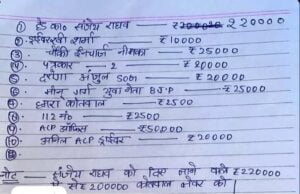 ① हे0 का0 संजय राघव — ₹20000 ₹20000
② ईश्वरचन्द्र शर्मा — ₹10000
③ चौकी इंचार्ज नीमका — ₹25000
④ पत्रकार - 2 — ₹20000
⑤ दरोगा अंजुल SOG — ₹20000
⑥ सोनू शर्मा युवा नेता BJP — ₹25000
⑦ हमारा कोतवाल — ₹2500
⑧ 112 नं0 — ₹2500
⑨ ACP ऑफिस — ₹50000
⑩ ACP ड्राईवर — ₹20000
नोट — संजय राघव को दिए जाने वाले ₹220000
में से ₹200000 कोतवाल को